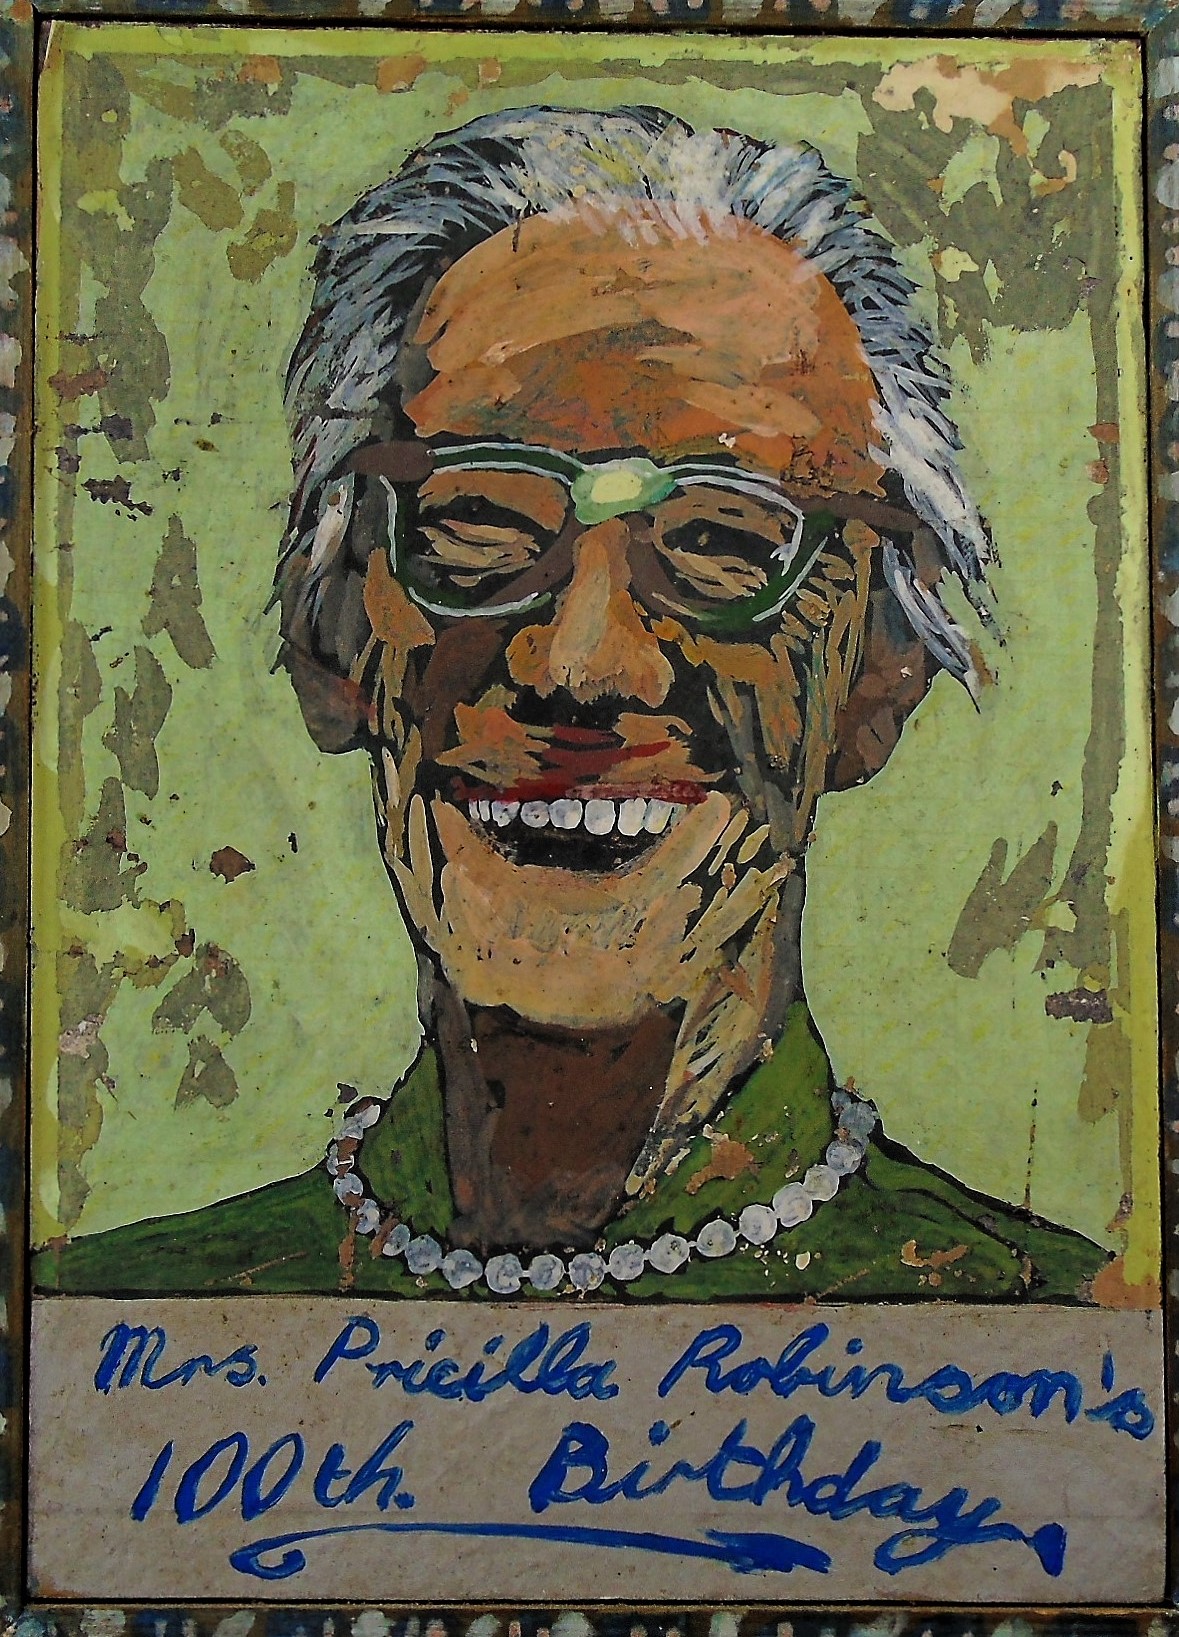 Mrs. Pricilla Robinson's
100th. Birthday